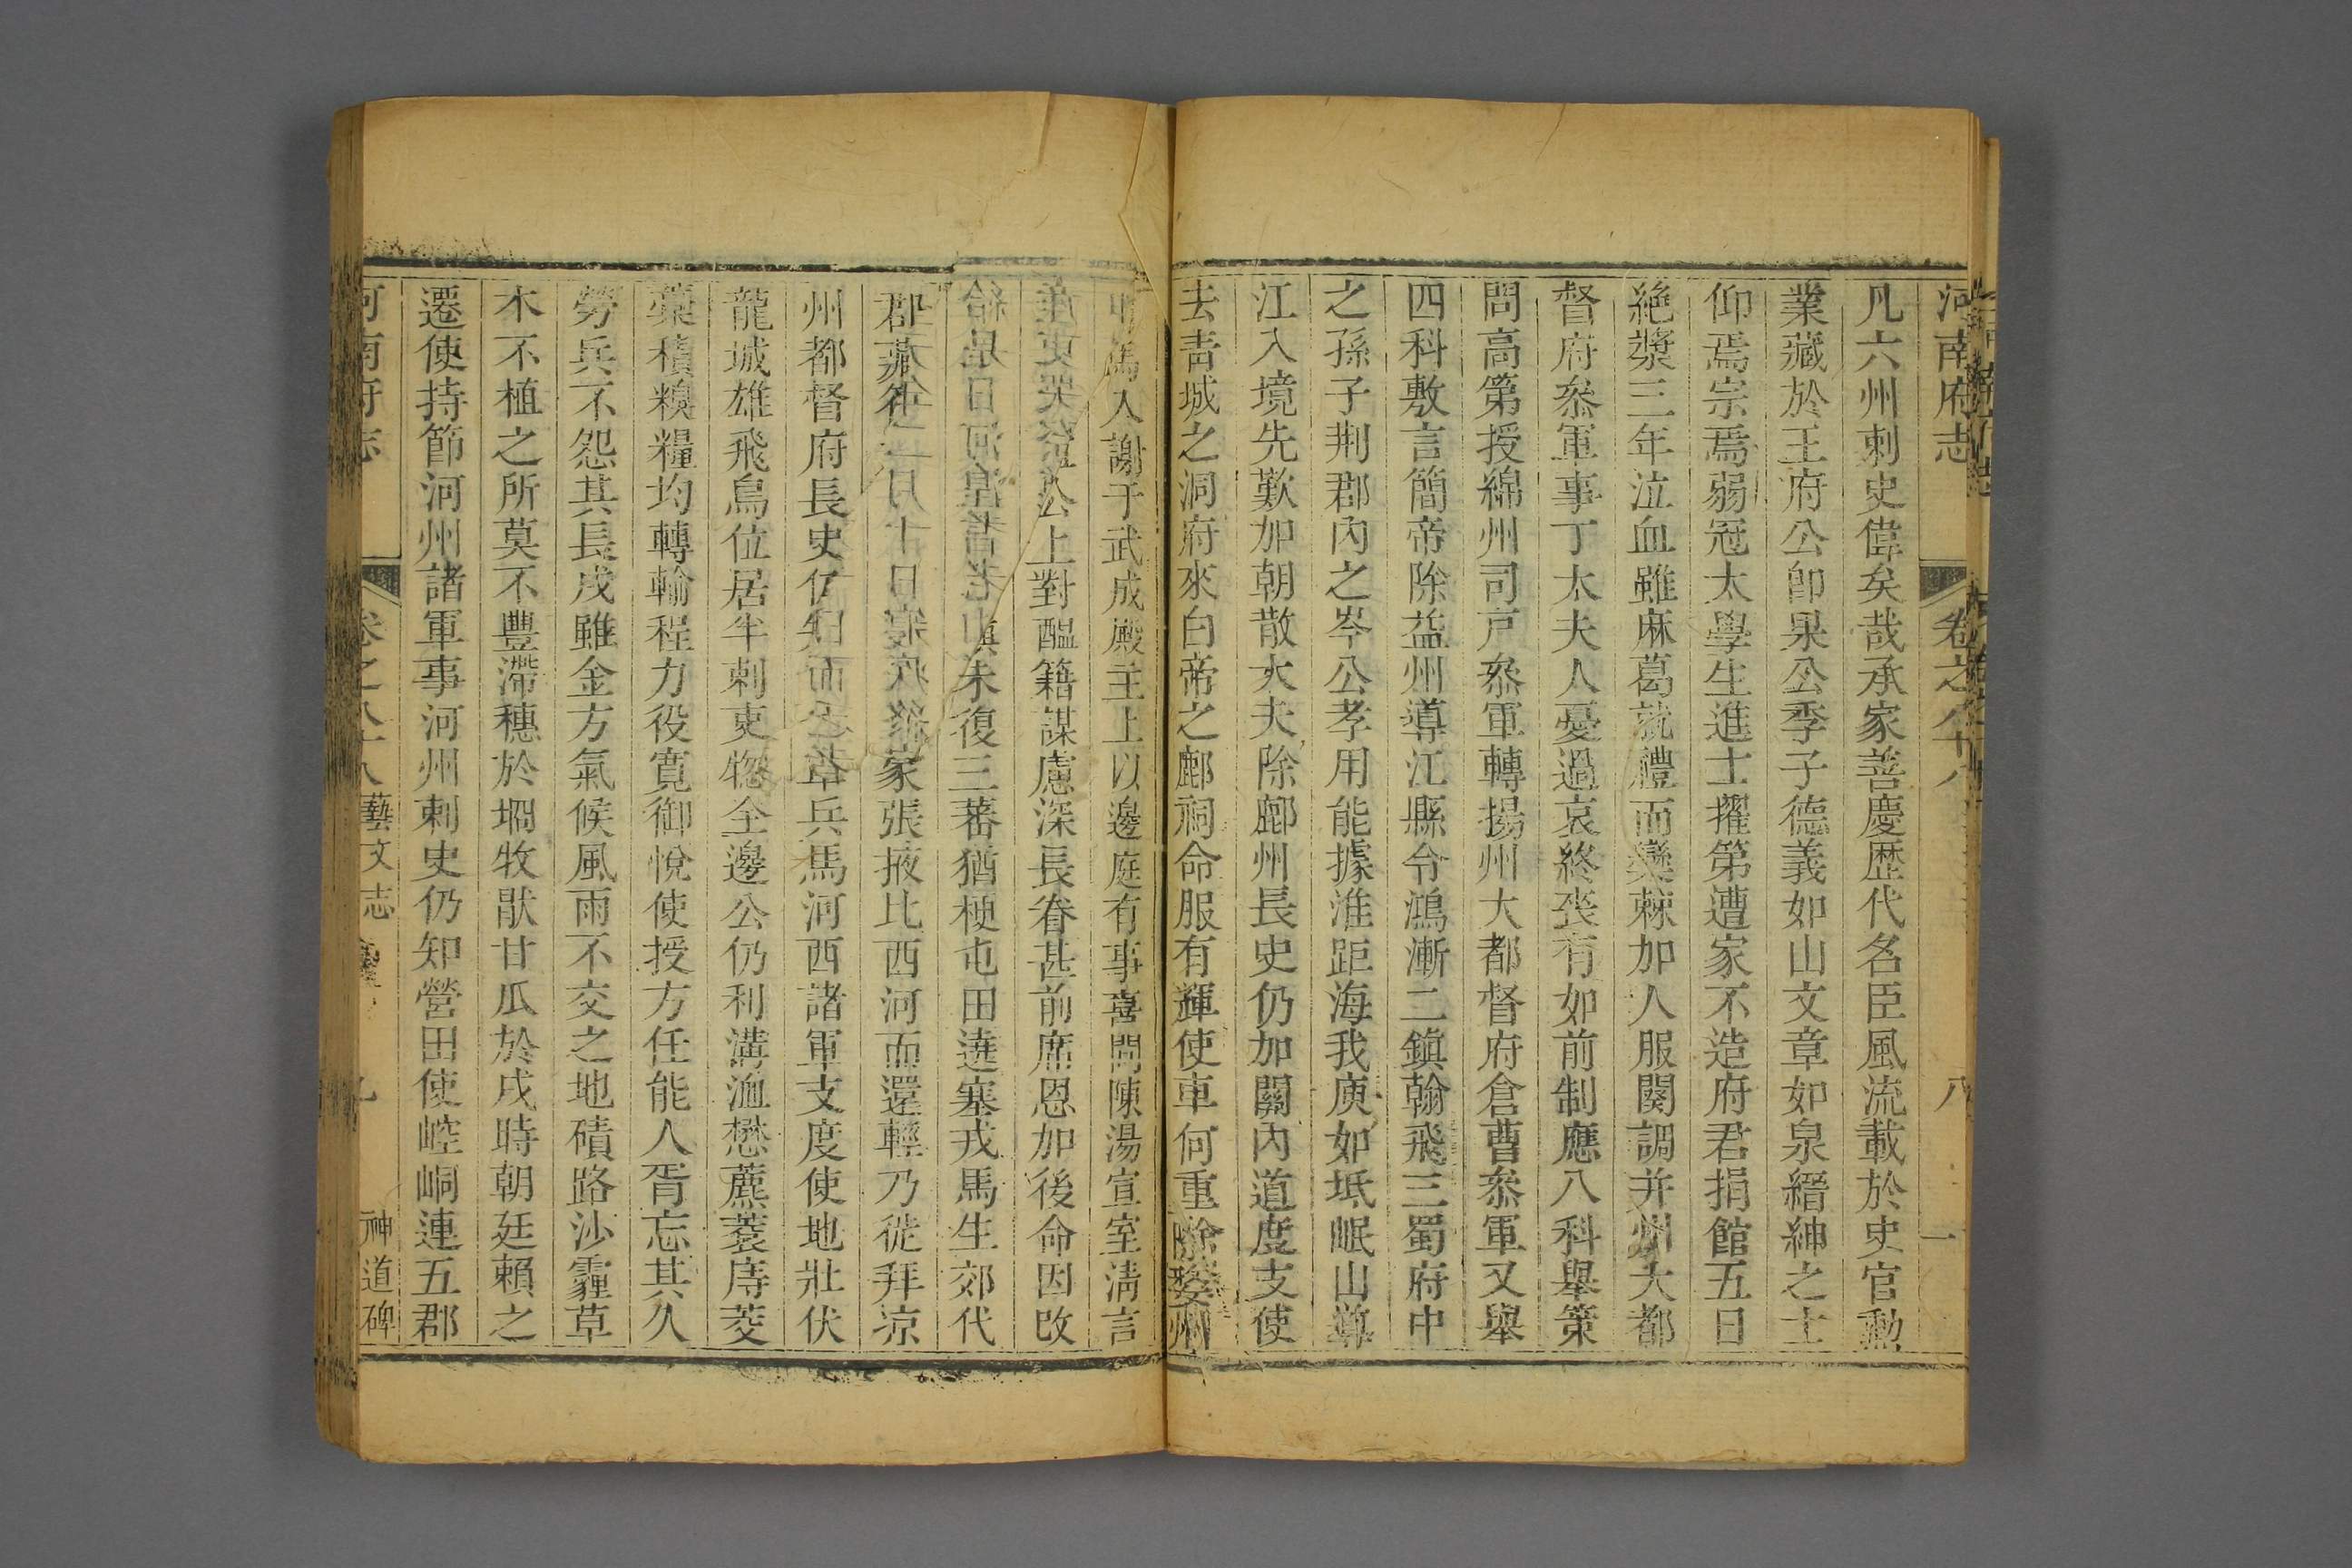 河南府志 卷之八十八 八
凡六州刺史偉矣哉承家善慶歷代名臣風流載於史官勳
業藏於王府公卽果公季子德義如山文章如泉縉紳之士
仰焉宗焉弱冠太學生進士擢第遭家不造府君捐館五日
絶漿三年泣血雖麻葛就禮而欒棘加人服闋調并州大都
督府叅軍事丁太夫人憂過哀終喪有如前制應八科舉策
問高第授綿州司戸叅軍轉揚州大都督府倉曹叅軍又舉
四科敷言簡帝除益州導江縣令鴻漸二鎮翰飛三蜀府中
之孫子荆郡內之岑公孝用能據淮距海我庾如坻岷山導
江入境先歎加朝散大夫除鄜州長史仍加關內道度支使
去靑城之洞府來白帝之鄜祠命服有輝使車何重除婺州
爲人謝于武成殿主上以邊庭有事喜問陳湯宣室淸言
公上對醖籍謀慮深長眷甚前席恩加後命因改
未復三蕃猶梗屯田遶塞戎馬生郊代
郡藏 家張掖比西河而還輕乃徙拜凉
州都督府長史仍知 兵馬河西諸軍支度使地壯伏
龍城雄飛鳥位居半刺吏 全邊公仍利溝洫懋藨蓘庤菱
藁積糗糧均轉輸程力役寬御悅使授方任能人胥忘其久
勞兵不怨其長戍雖金方氣候風雨不交之地磧路沙霾草
木不植之所莫不豐滯穗於堈牧猒甘瓜於戍時朝廷賴之
遷使持節河州諸軍事河州刺史仍知營田使崆峒連五郡
河南府志 卷之八十八 藝文志 神道碑 九